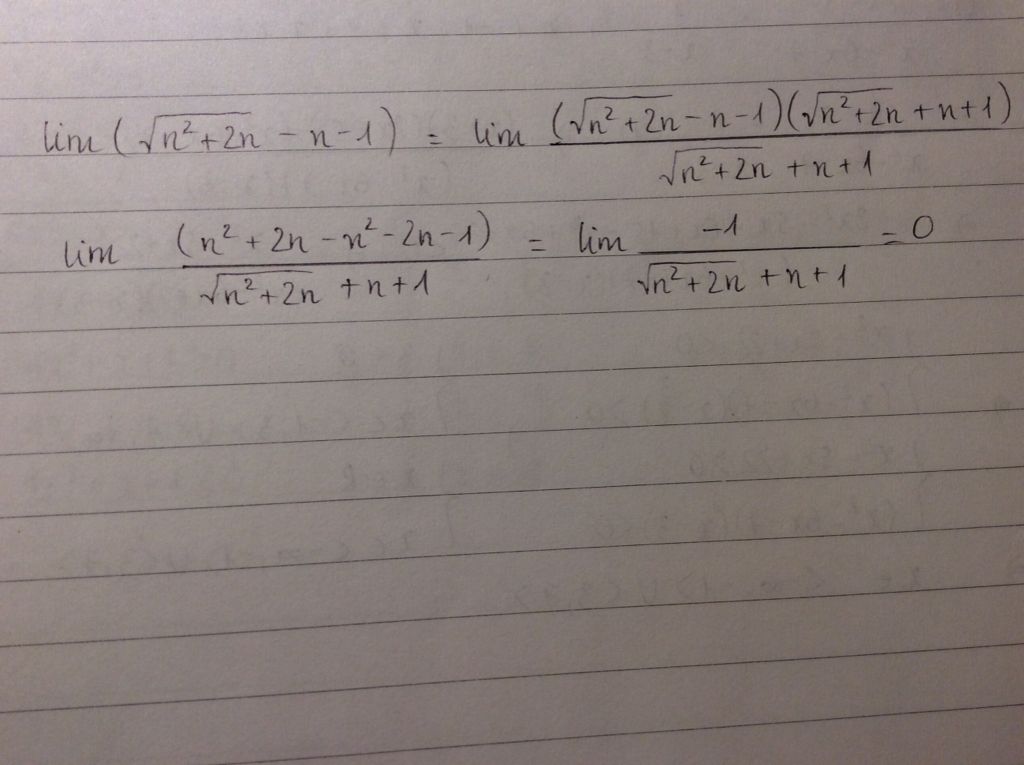 lim (√(n²+2n) - n - 1) = lim ((√(n²+2n) - n - 1)(√(n²+2n) + n + 1))/(√(n²+2n) + n + 1)
lim (n² + 2n - n² - 2n - 1)/(√(n²+2n) + n + 1) = lim (-1)/(√(n²+2n) + n + 1) = 0